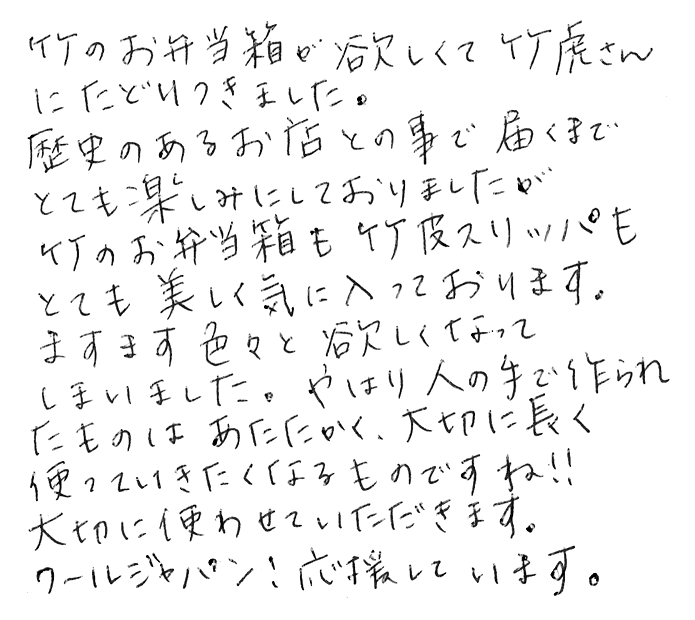 竹のお弁当箱が欲しくて竹虎さん
にたどりつきました。
歴史のあるお店との事で届くまで
とても楽しみにしておりましたが
竹のお弁当箱も竹皮スリッパも
とても美しく気に入っております。
ますます色々と欲しくなって
しまいました。やはり人の手で作られ
たものはあたたかく、大切に長く
使っていきたくなるものですね!!
大切に使わせていただきます。
クールジャパン!応援しています。